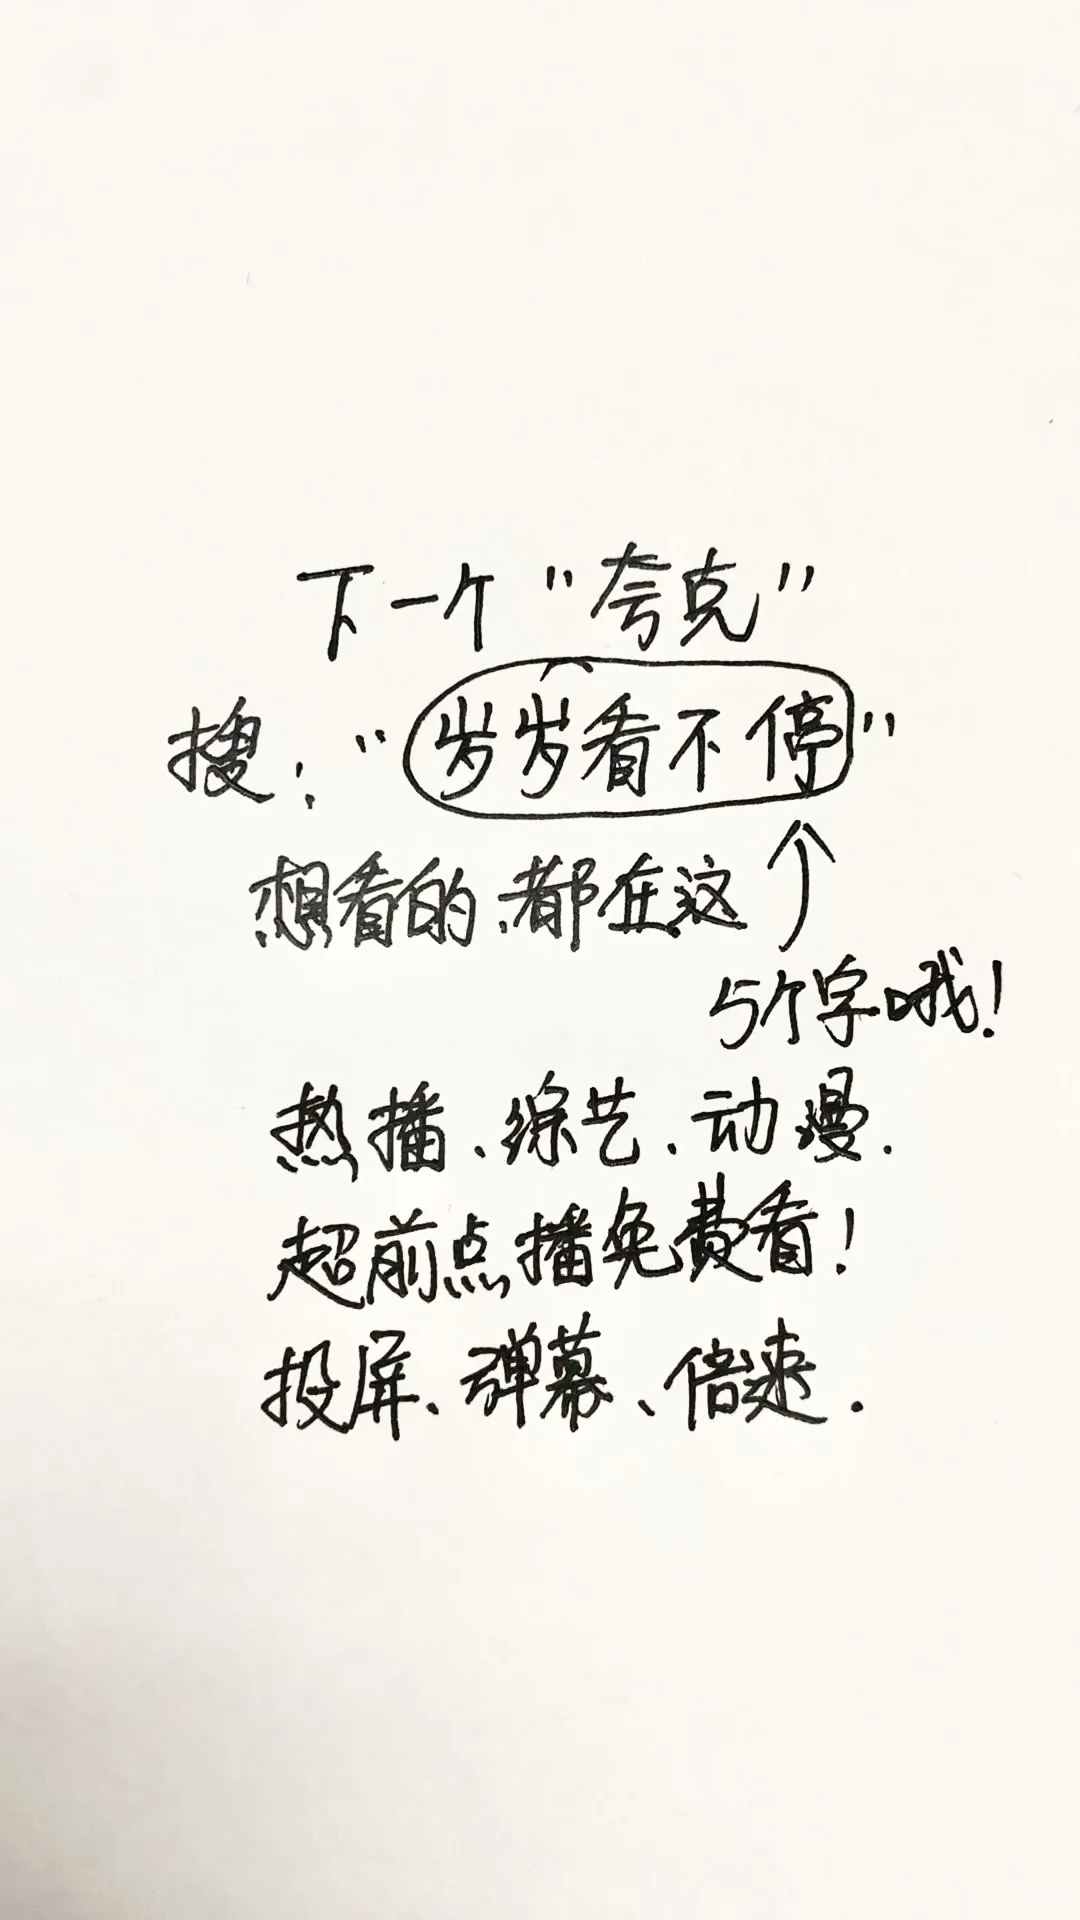 下一个“夸克”
搜：“岁岁看不停”
想看的.都在这
5个字哦！
热播、综艺、动漫.
超前点播免费看！
投屏、弹幕、倍速.